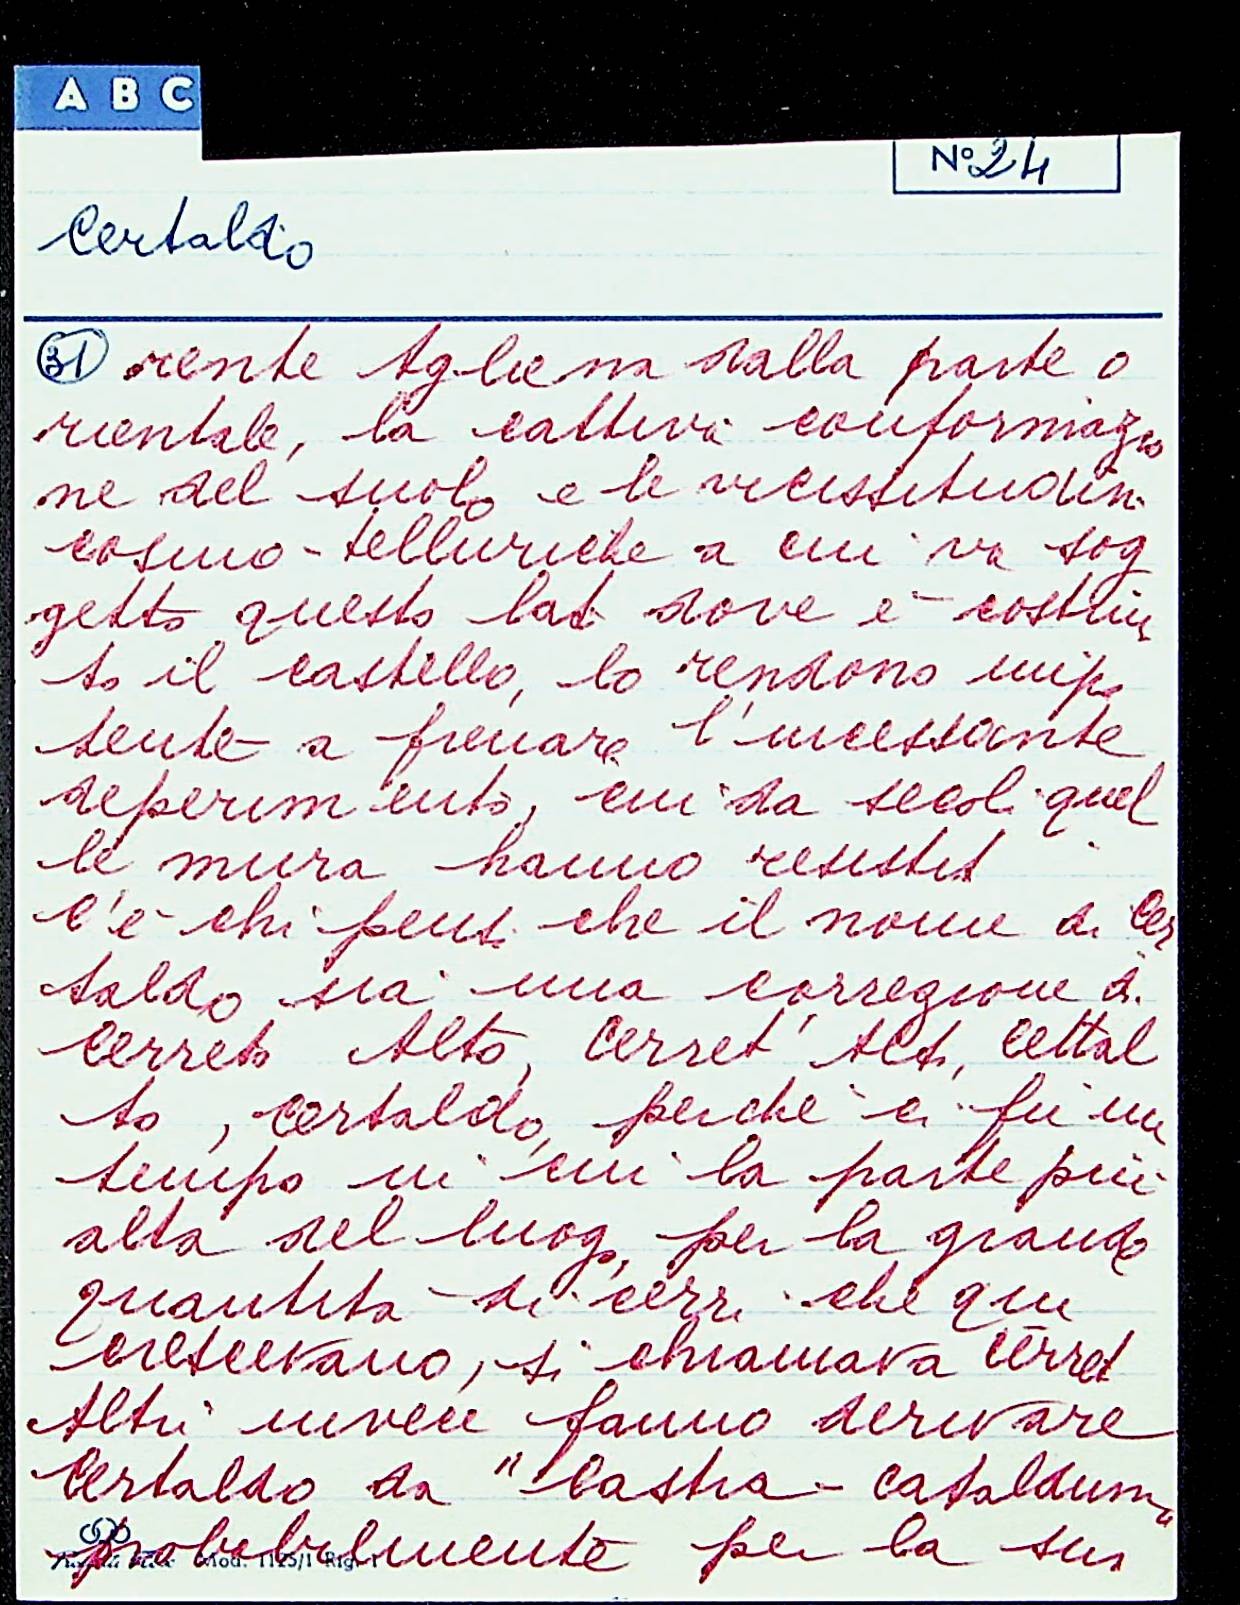 A B C
N° 24
Certaldo
31 rente Agliena dalla parte o
rientale, la cattiva conformazio
ne del suolo e le vicissitudini
cosmo-telluriche a cui va sog
getto questo lato dove è costrui
to il castello, lo rendono impo
tente a frenare l'incessante
deperimento, cui da secoli quel
le mura hanno resistito
C'è chi pensa che il nome di Cer
taldo sia una corregione di
Cerreto Alto, Cerret' Alto, Cettal
to, Certaldo, perchè ci fu un
tempo in cui la parte più
alta del luogo, per la grande
quantità di cerri che qui
crescevano, si chiamava Cerreto
Altri invece fanno derivare
Certaldo da "Castra-cataldum"
probabilmente per la sua
Mod. 1125/1 Rig. 1